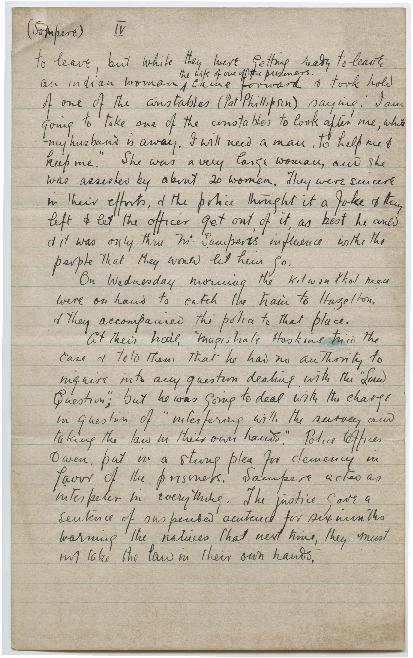 (Sampere) IV
to leave, but while they were getting ready to leave
the wife of one of the prisoners.
an indian woman, came forward & took hold
of one of the constables (Pat Phillipson) saying. "I am
going to take one of the constables to look after me, while
my husband is away. I will need a man, to help me &
keep me." She was a very large woman, and she
was assisted by about 20 women. They were sincere
in their efforts, & the police thought it a joke & they
left & let the officer get out of it, as best he could
& it was only thru Mr. Sampere's influence with the
people that they would let him go.
On Wednesday morning the Kitwancool men
were on hand to catch the train to Hazelton,
& they accompanied the police to that place.
At their trial, magistrate Hoskins tried the
case & told them that he had no authority to
inquire into any question dealing with the "Land
Question", but he was going to deal with the charge
in question of "interfering with the survey and
taking the law in their own hands". Police Officer
Owen, put in a strong plea for clemency in
favor of the prisoners. Sampere acted as
interpreter in everything. The justice gave a
sentence of suspended sentence for six months
warning the natives that next time, they must
not take the law in their own hands.